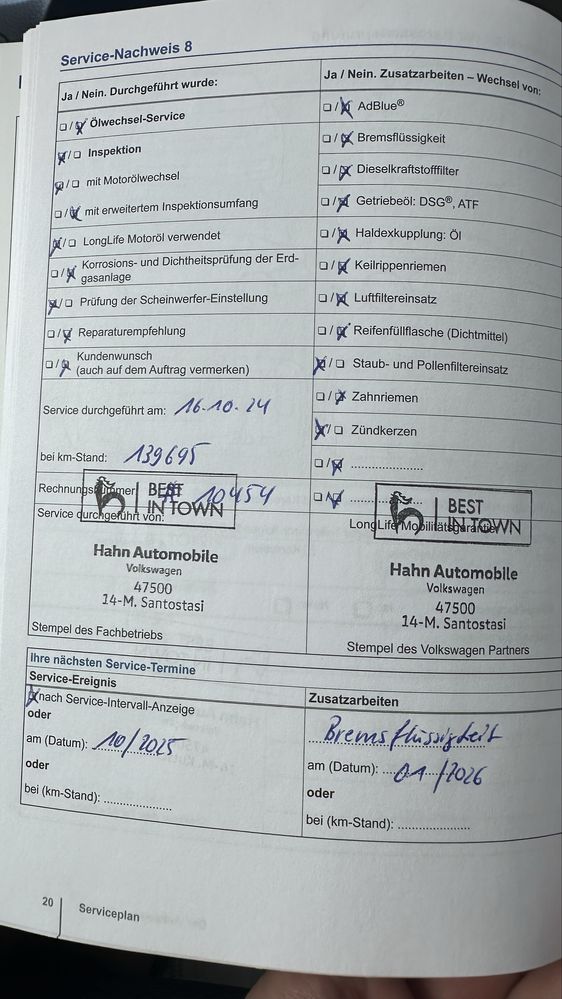 Service-Nachweis 8
Ja / Nein. Durchgeführt wurde:
☐ / ☒ Ölwechsel-Service
☒ / ☐ Inspektion
☒ / ☐ mit Motorölwechsel
☐ / ☒ mit erweitertem Inspektionsumfang
☒ / ☐ LongLife Motoröl verwendet
☐ / ☒ Korrosions- und Dichtheitsprüfung der Erd-
gasanlage
☒ / ☐ Prüfung der Scheinwerfer-Einstellung
☐ / ☒ Reparaturempfehlung
☐ / ☒ Kundenwunsch
(auch auf dem Auftrag vermerken)
Service durchgeführt am: 16.10.24
bei km-Stand: 139695
Rechnungsnummer: 10454
BEST
IN TOWN
Service durchgeführt von:
Hahn Automobile
Volkswagen
47500
14-M. Santostasi
Stempel des Fachbetriebs
Ja / Nein. Zusatzarbeiten – Wechsel von:
☐ / ☒ AdBlue®
☐ / ☒ Bremsflüssigkeit
☐ / ☒ Dieselkraftstofffilter
☐ / ☒ Getriebeöl: DSG®, ATF
☐ / ☒ Haldexkupplung: Öl
☐ / ☒ Keilrippenriemen
☐ / ☒ Luftfiltereinsatz
☐ / ☒ Reifenfüllflasche (Dichtmittel)
☒ / ☐ Staub- und Pollenfiltereinsatz
☐ / ☒ Zahnriemen
☒ / ☐ Zündkerzen
☐ / ☒ ....................
☐ / ☒ ....................
BEST
IN TOWN
LongLife Mobilitätsgarantie
Hahn Automobile
Volkswagen
47500
14-M. Santostasi
Stempel des Volkswagen Partners
Ihre nächsten Service-Termine
Service-Ereignis
☒ nach Service-Intervall-Anzeige
oder
am (Datum): 10/2025
oder
bei (km-Stand): ..................
Zusatzarbeiten
Bremsflüssigkeit
am (Datum): 01/2026
oder
bei (km-Stand): ..................
20
Serviceplan